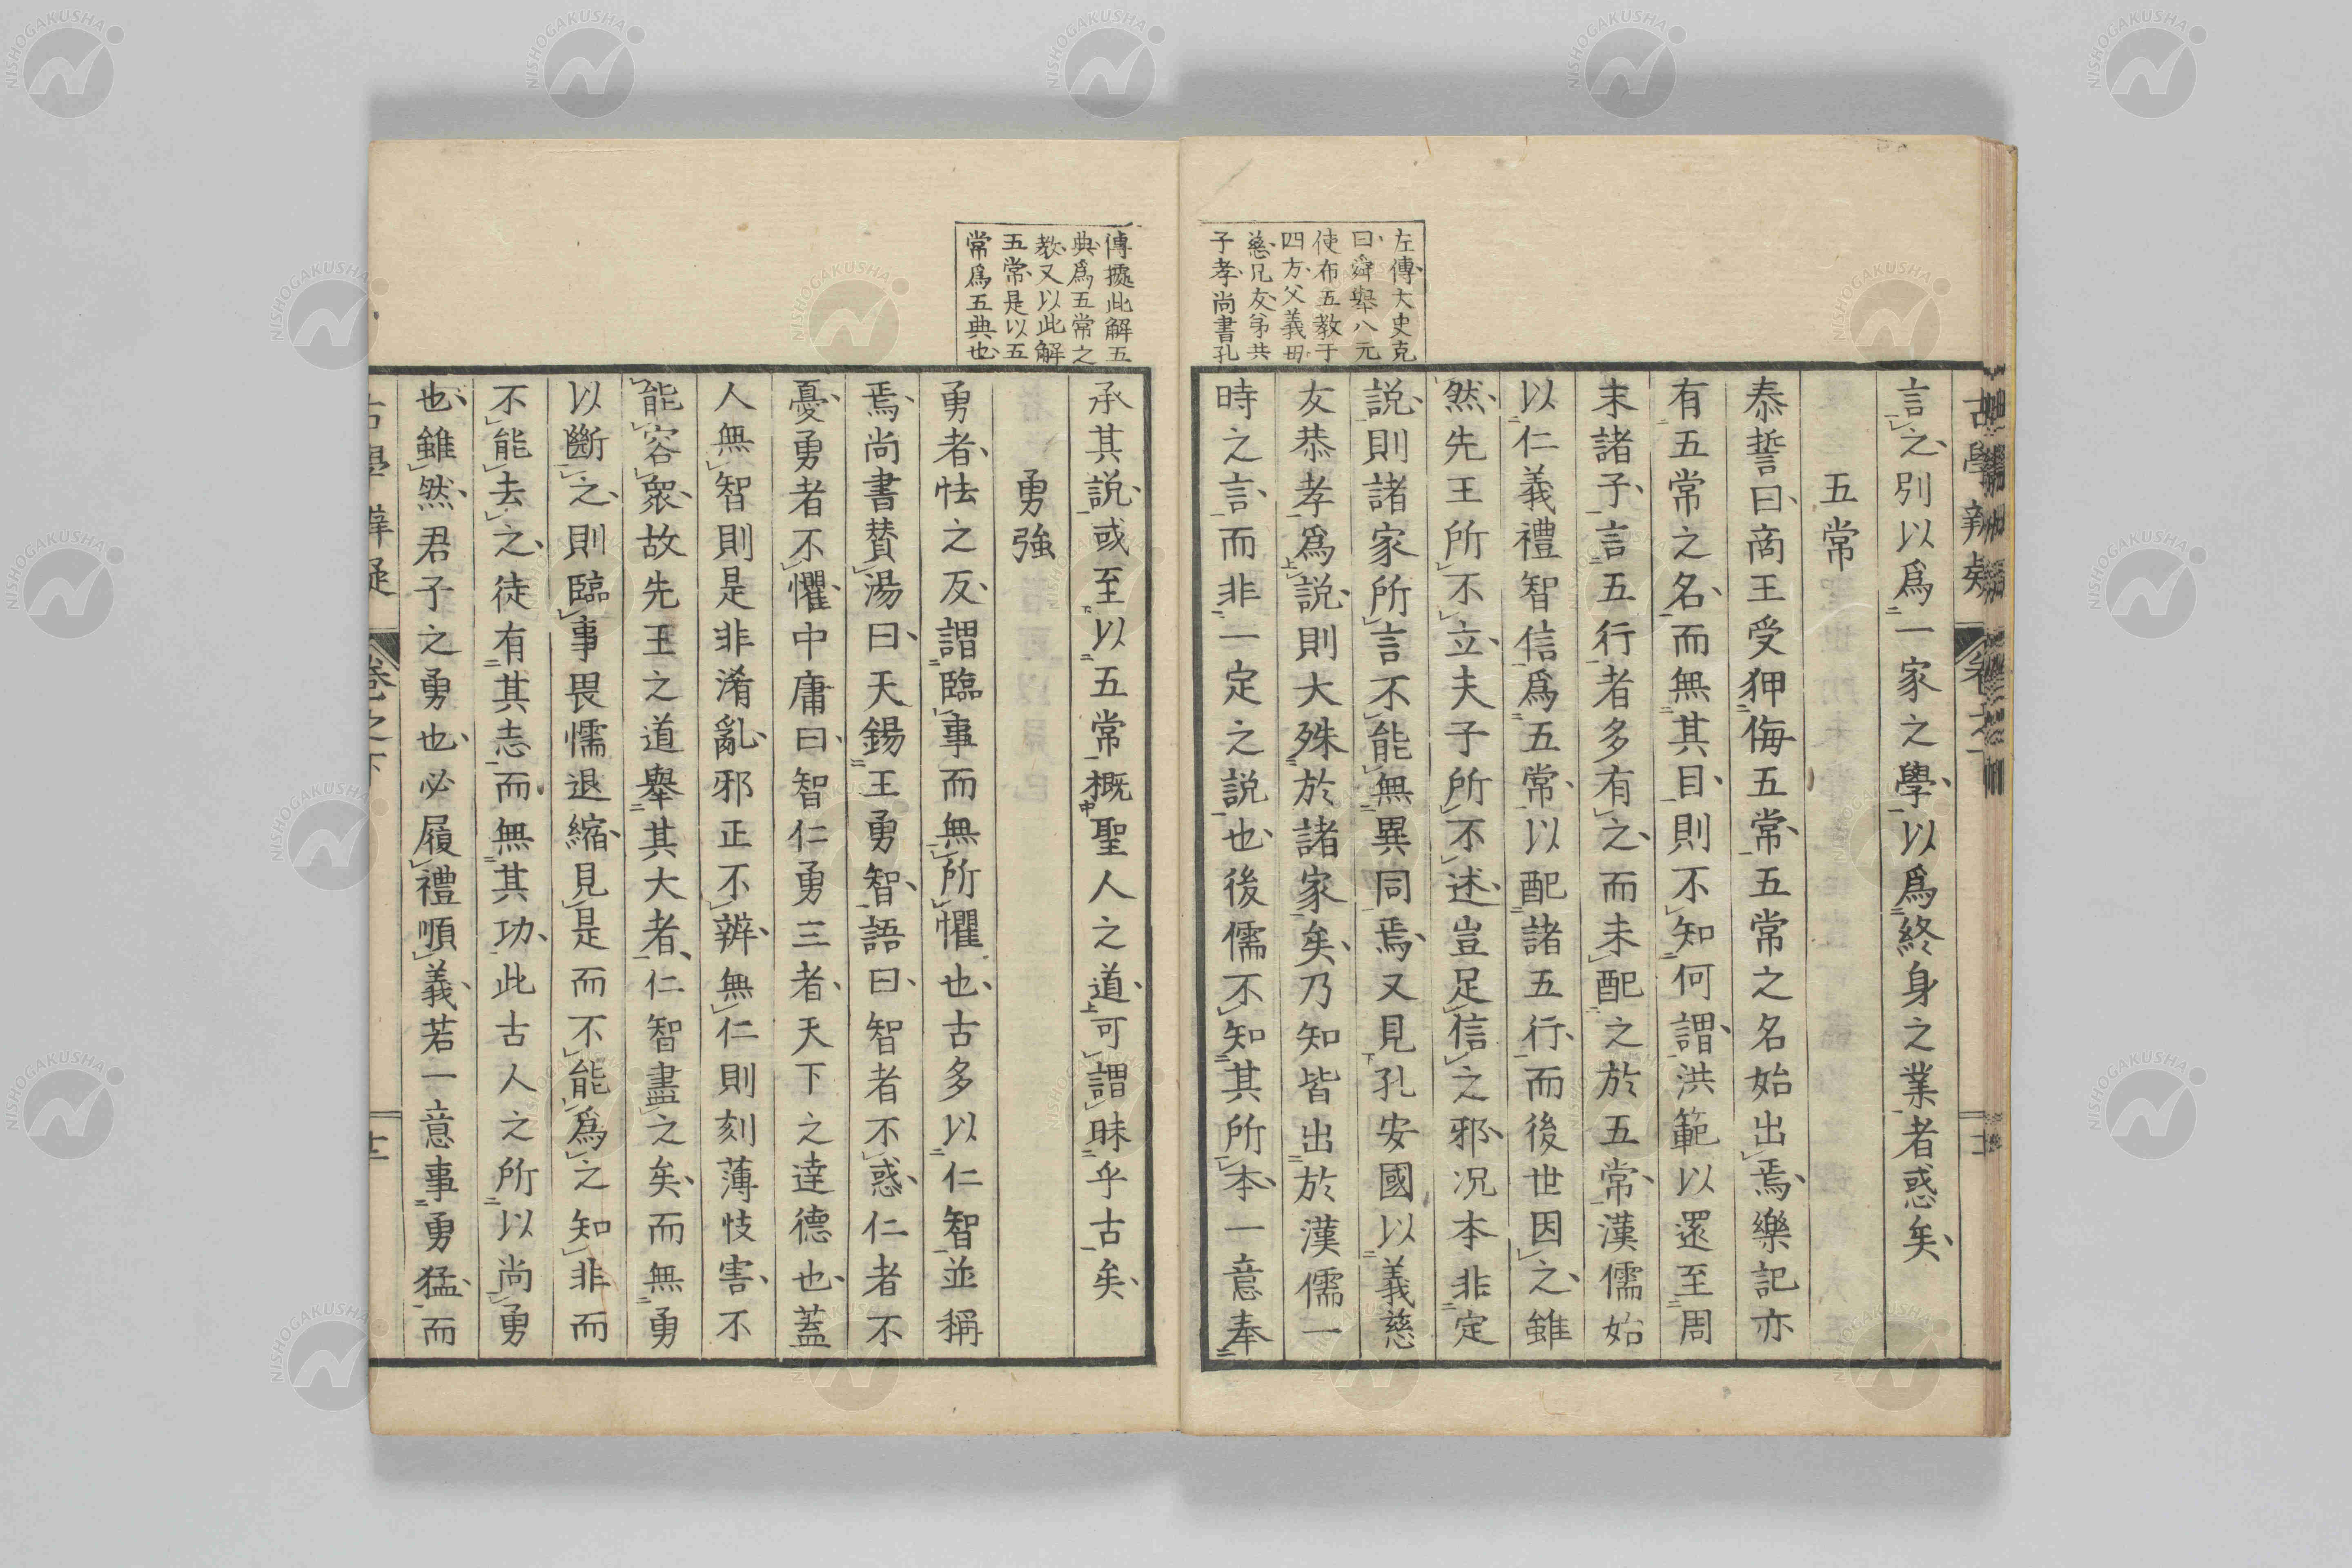 左傳大史克
曰舜舉八元
使布五教于
四方父義母
慈兄友弟共
子孝尚書孔
言之別以爲一家之學以爲終身之業者惑矣
五常
泰誓曰商王受狎侮五常五常之名始出焉樂記亦
有五常之名而無其目則不知何謂洪範以還至周
末諸子言五行者多有之而未配之於五常漢儒始
以仁義禮智信爲五常以配諸五行而後世因之雖
然先王所不立夫子所不述豈足信之邪况本非定
説則諸家所言不能無異同焉又見孔安國以義慈
友恭孝爲説則大殊於諸家矣乃知皆出於漢儒一
時之言而非一定之説也後儒不知其所本一意奉
傳據此解五
典爲五常之
教又以此解
五常是以五
常爲五典也
承其説或至以五常概聖人之道可謂昧乎古矣
勇強
勇者怯之反謂臨事而無所懼也古多以仁智並稱
焉尚書賛湯曰天錫王勇智語曰智者不惑仁者不
憂勇者不懼中庸曰智仁勇三者天下之達德也蓋
人無智則是非淆亂邪正不辨無仁則刻薄忮害不
能容衆故先王之道舉其大者仁智盡之矣而無勇
以斷之則臨事畏懦退縮見是而不能爲之知非而
不能去之徒有其志而無其功此古人之所以尚勇
也雖然君子之勇也必履禮順義若一意事勇猛而
古學辨疑
卷之下